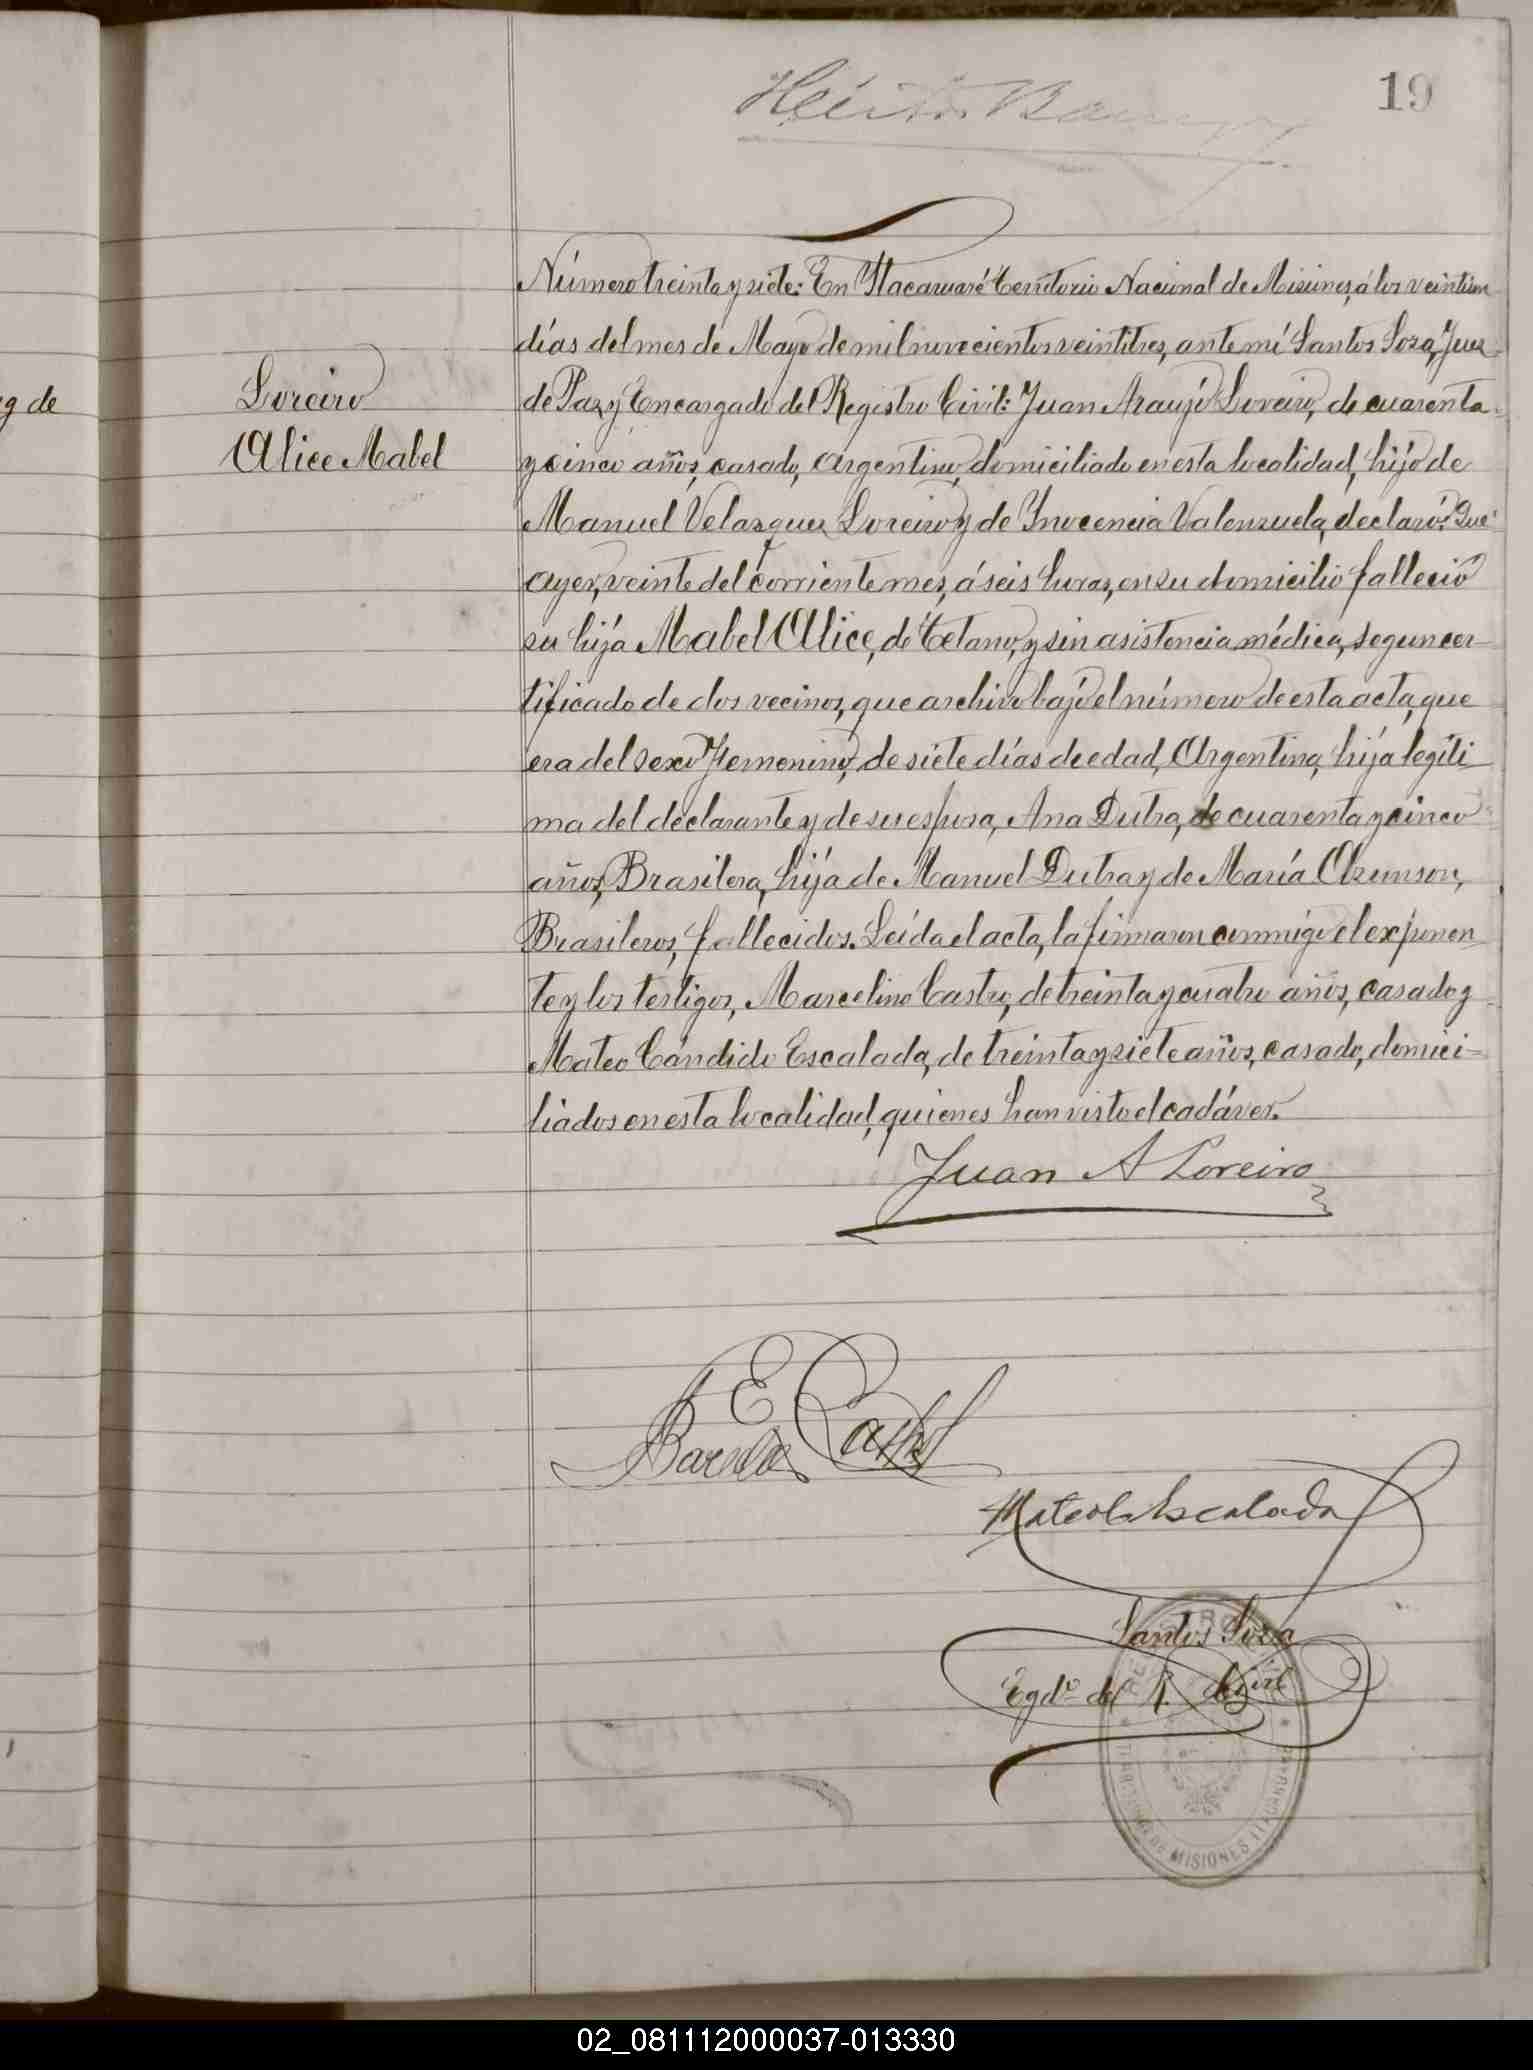 19
Héctor
Número treinta y siete: En Itacaruaré Territorio Nacional de Misiones, á los veintiun
días del mes de Mayo de mil novecientos veintitres, ante mí Santos Soza, Juez
de Paz y Encargado del Registro Civil: Juan Araujo Loreiro, de cuarenta
y cinco años, casado, Argentino, domiciliado en esta localidad, hijo de
Manuel Velazquez Loreiro y de Inocencia Valenzuela, declaró: Que
ayer, veinte del corriente mes, á seis horas, en su domicilio falleció
su hija Mabel Alice, de Tetano, y sin asistencia médica, segun cer-
tificado de dos vecinos, que archivo bajo el número de esta acta, que
era del sexo Femenino, de siete días de edad, Argentina, hija legíti-
ma del declarante y de su esposa, Ana Dutra, de cuarenta y cinco
años, Brasilera, hija de Manuel Dutra y de María
Brasileros, fallecidos. Leída el acta, la firmaron conmigo el exponen-
te y los testigos, Marcelino Castro, de treinta y cuatro años, casado y
Mateo Cándido Escalada, de treinta y siete años, casado, domici-
liados en esta localidad, quienes han visto el cadáver.
Loreiro
Alice Mabel
g de
Juan A Loreiro
E Castro
Mateo C. Escalada
Santos Soza
Egdo del R. Civil
REGISTRO CIVIL
TERRITORIO DE MISIONES ITACARUARE
02_081112000037-013330